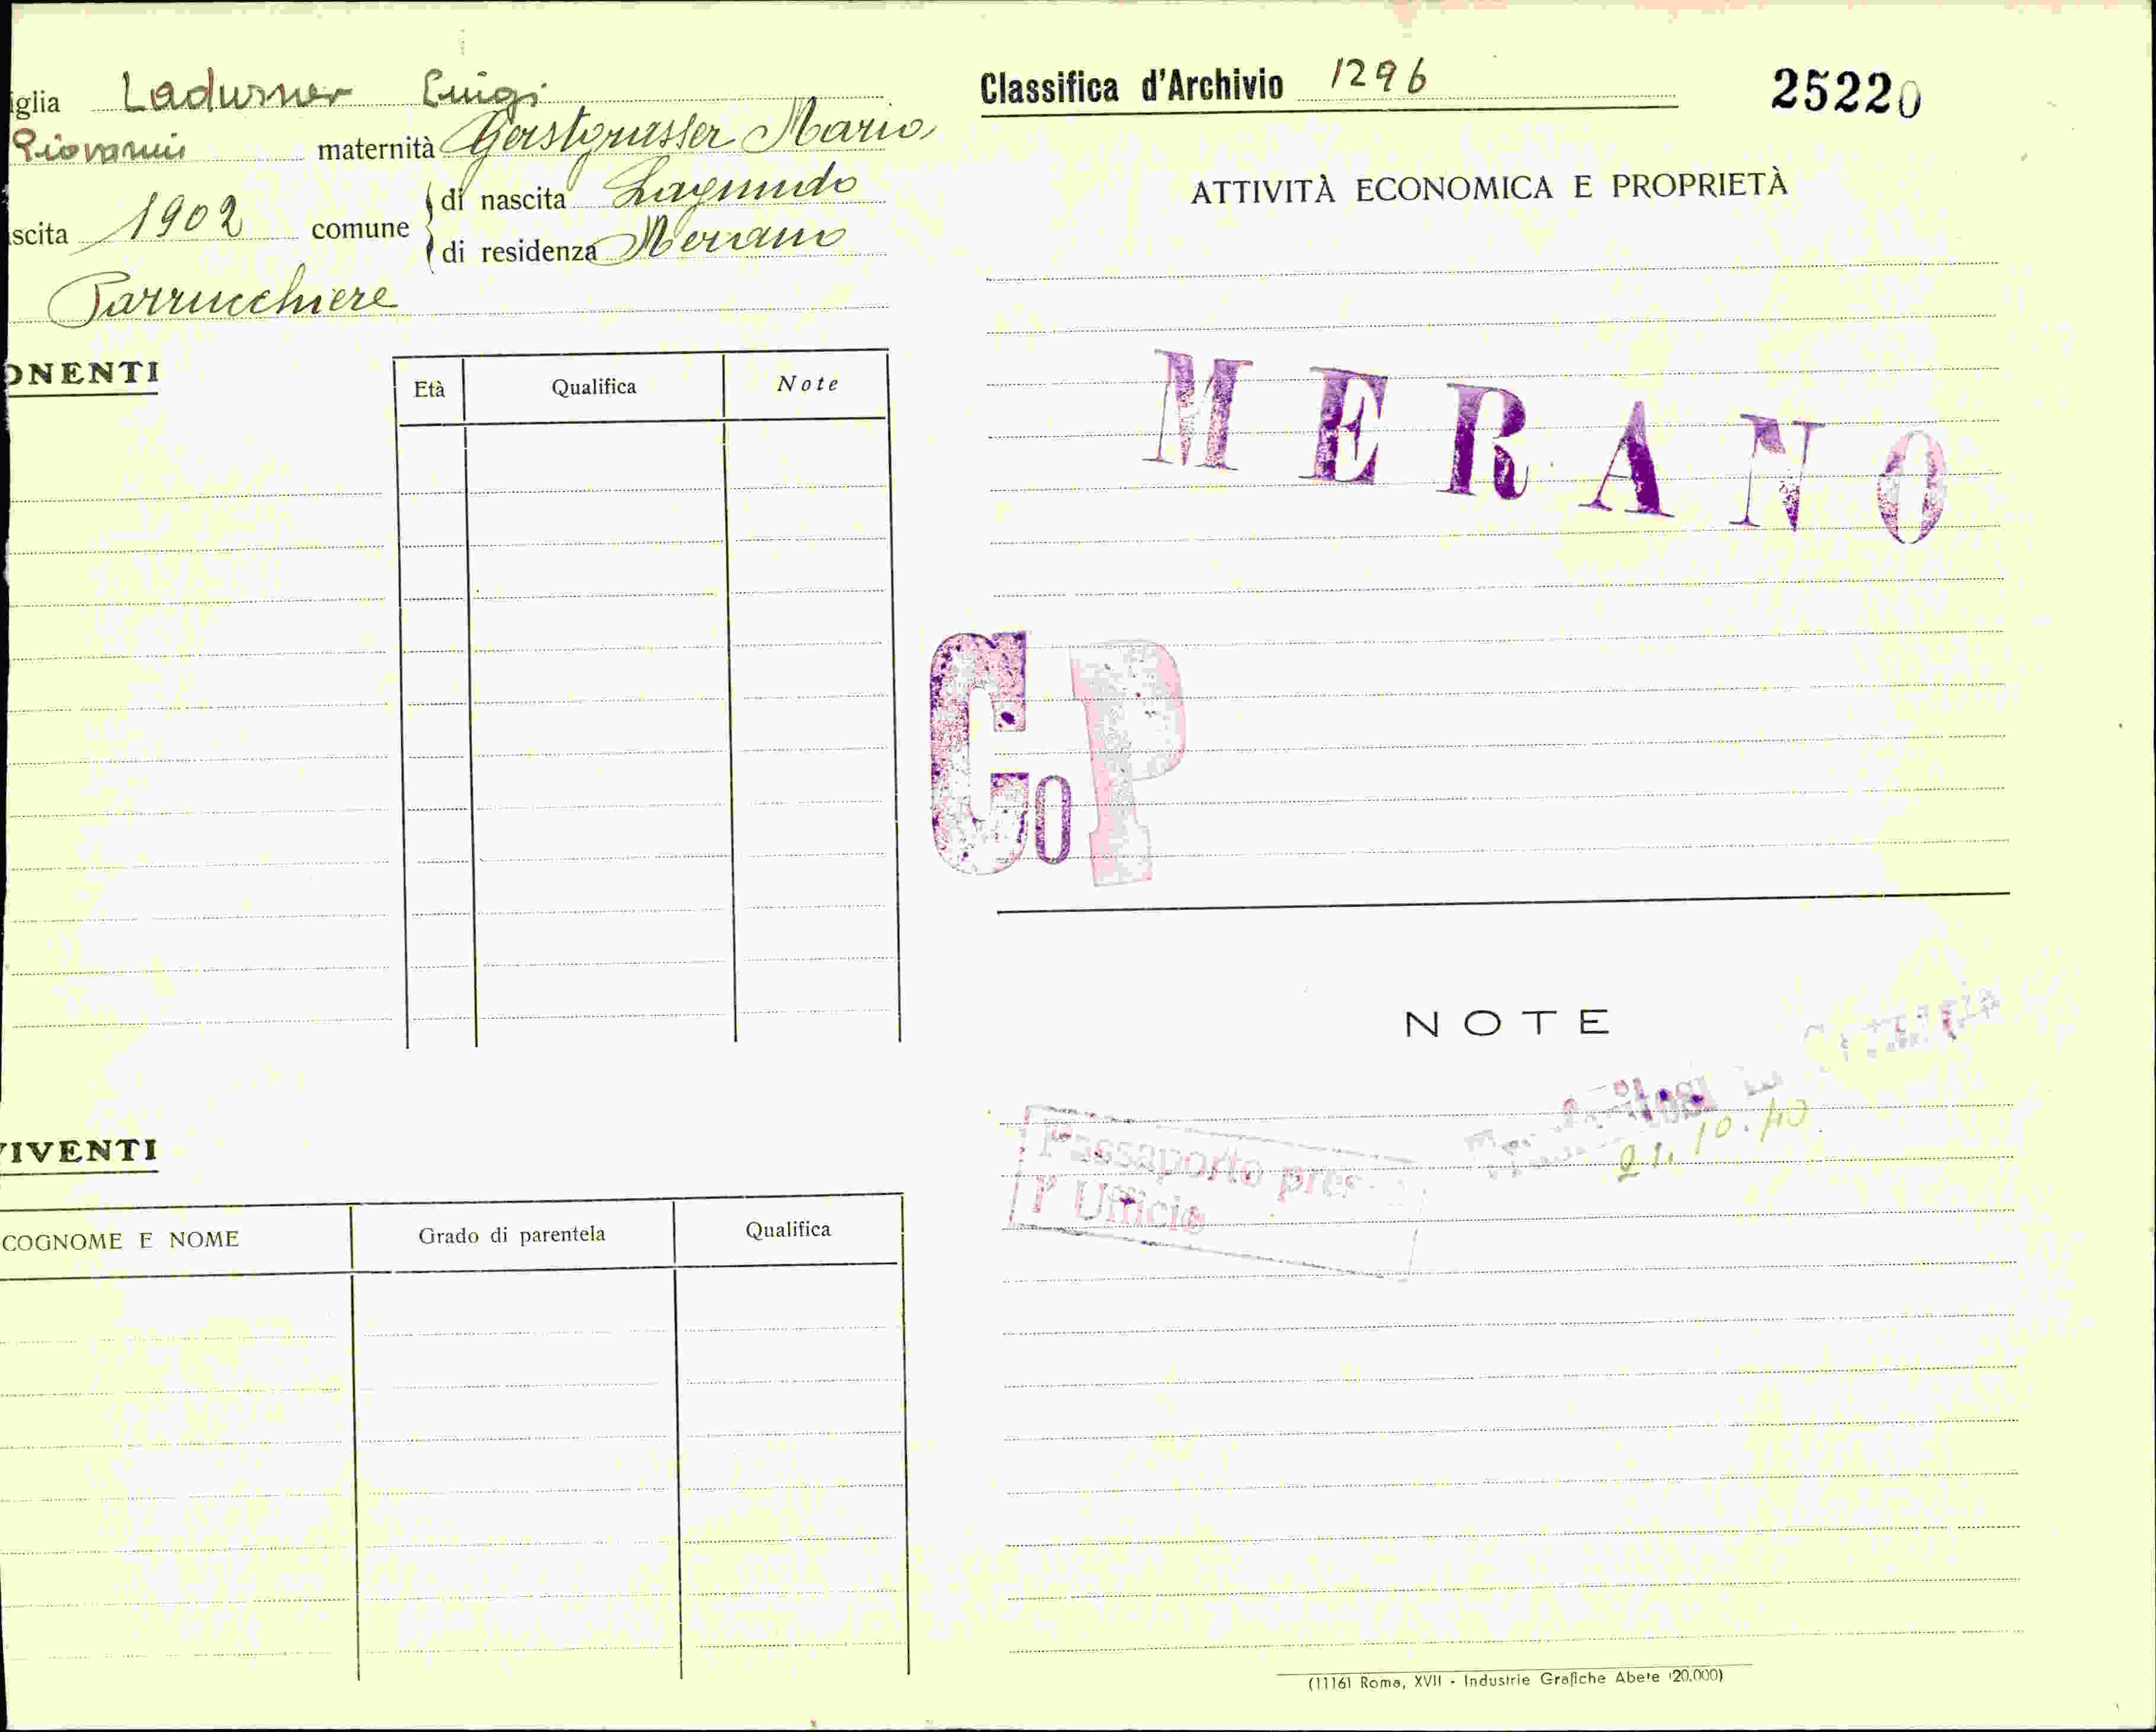 iglia Ladurner Luigi
Giovanni maternità Gerstgrasser Maria
scita 1902 comune di nascita Lagundo
di residenza Merano
Parrucchiere
ONENTI
Età Qualifica Note
VIVENTI
COGNOME E NOME Grado di parentela Qualifica
Classifica d'Archivio 1296 25220
ATTIVITÀ ECONOMICA E PROPRIETÀ
MERANO
CoP
NOTE
21.10.40
Passaporto
l'Ufficio
(1116) Roma, XVII - Industrie Grafiche Abete (20.000)